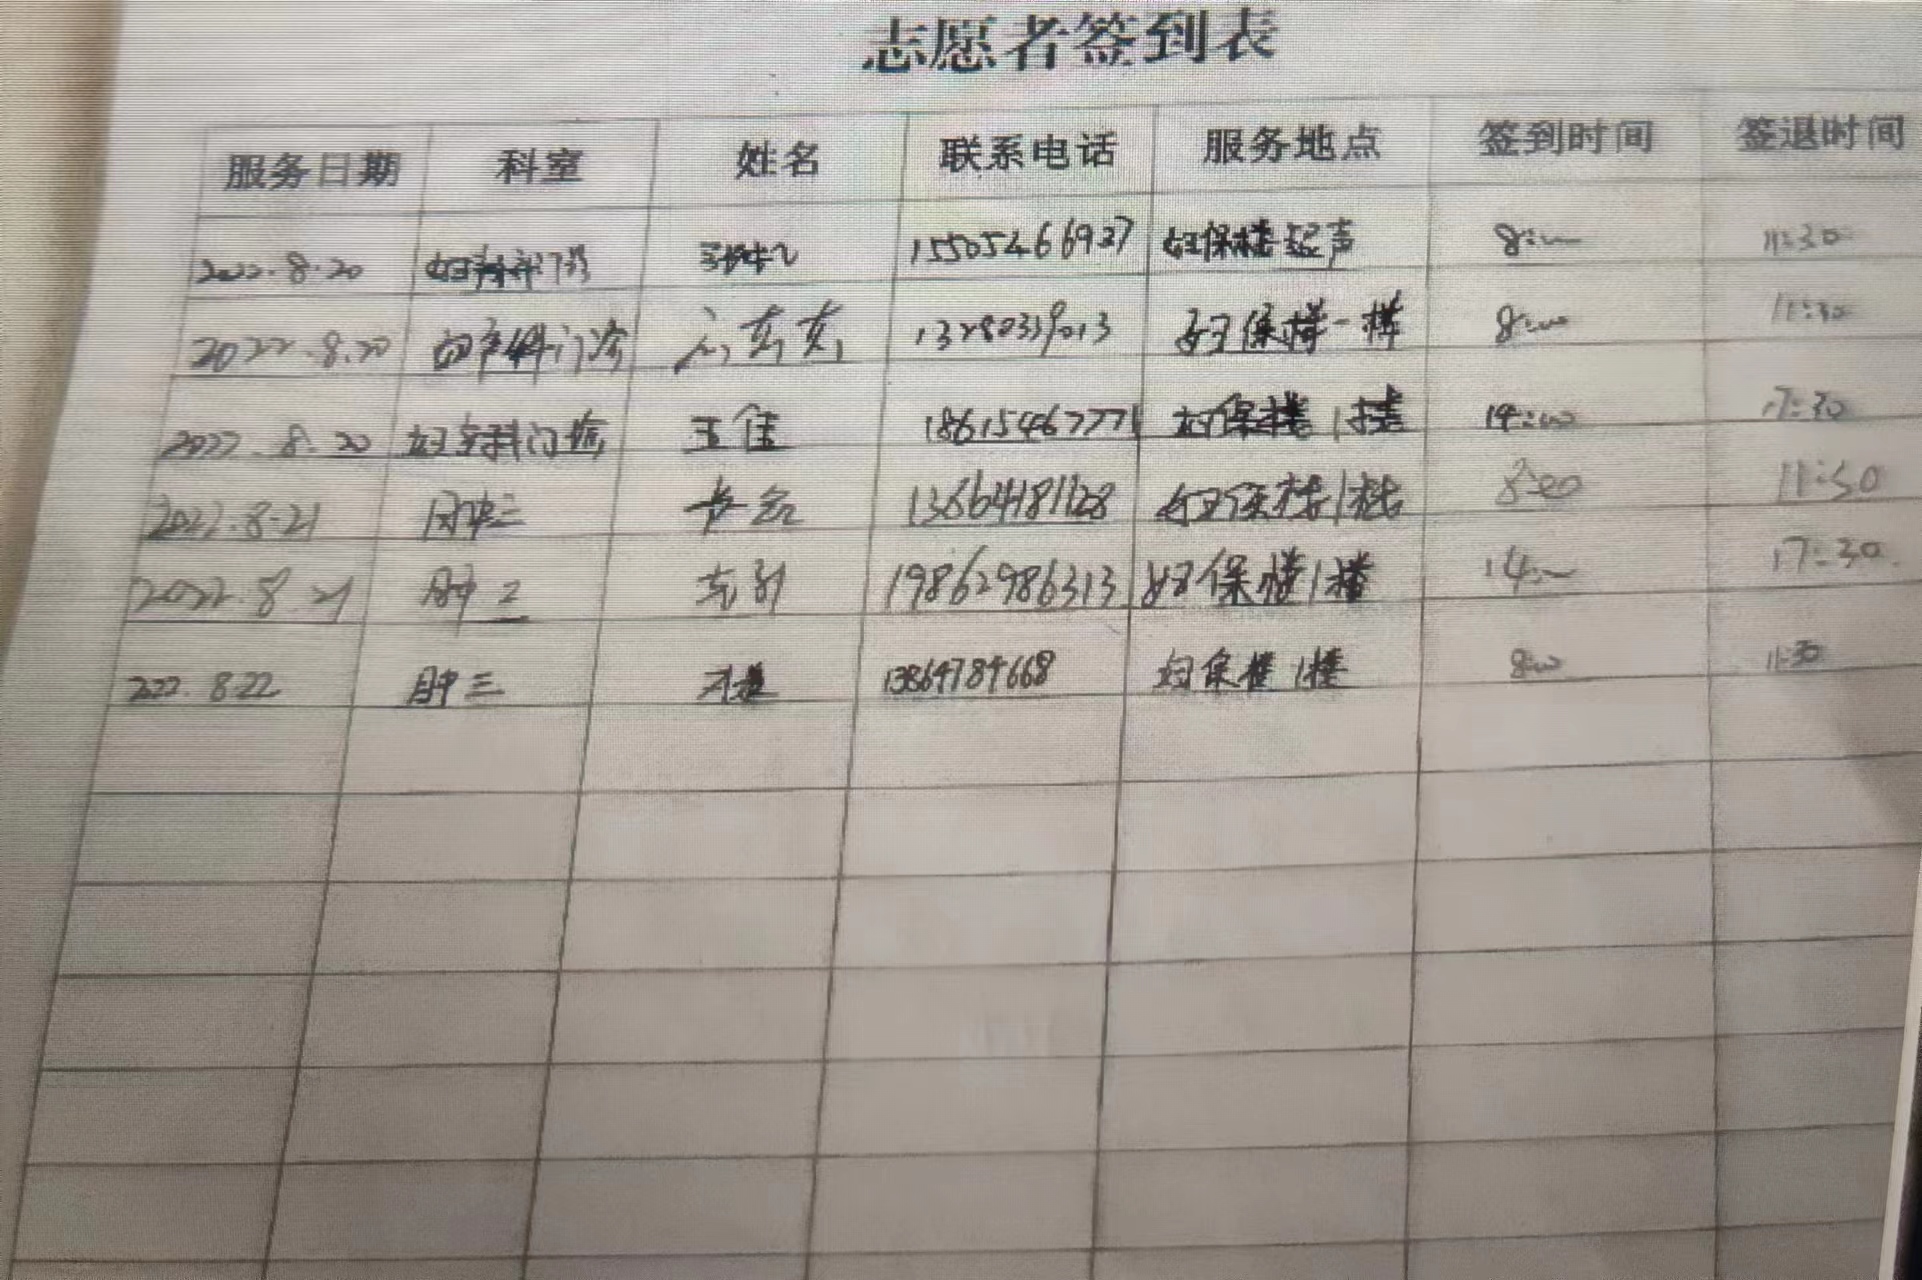 志愿者签到表
服务日期 科室 姓名 联系电话 服务地点 签到时间 签退时间
2022.8.20 妇产科门诊 15505466927 妇保楼超声 8:00 11:30
2022.8.20 妇产科门诊 13280339013 妇保楼一楼 8:00 11:30
2022.8.20 妇产科门诊 王佳 18615467771 妇保楼1楼 14:00 17:30
2022.8.21 肿三 13864181128 妇保楼1楼 8:00 11:30
2022.8.21 肿三 19862986313 妇保楼1楼 14:00 17:30
2022.8.22 肿三 13864784668 妇保楼1楼 8:00 11:30